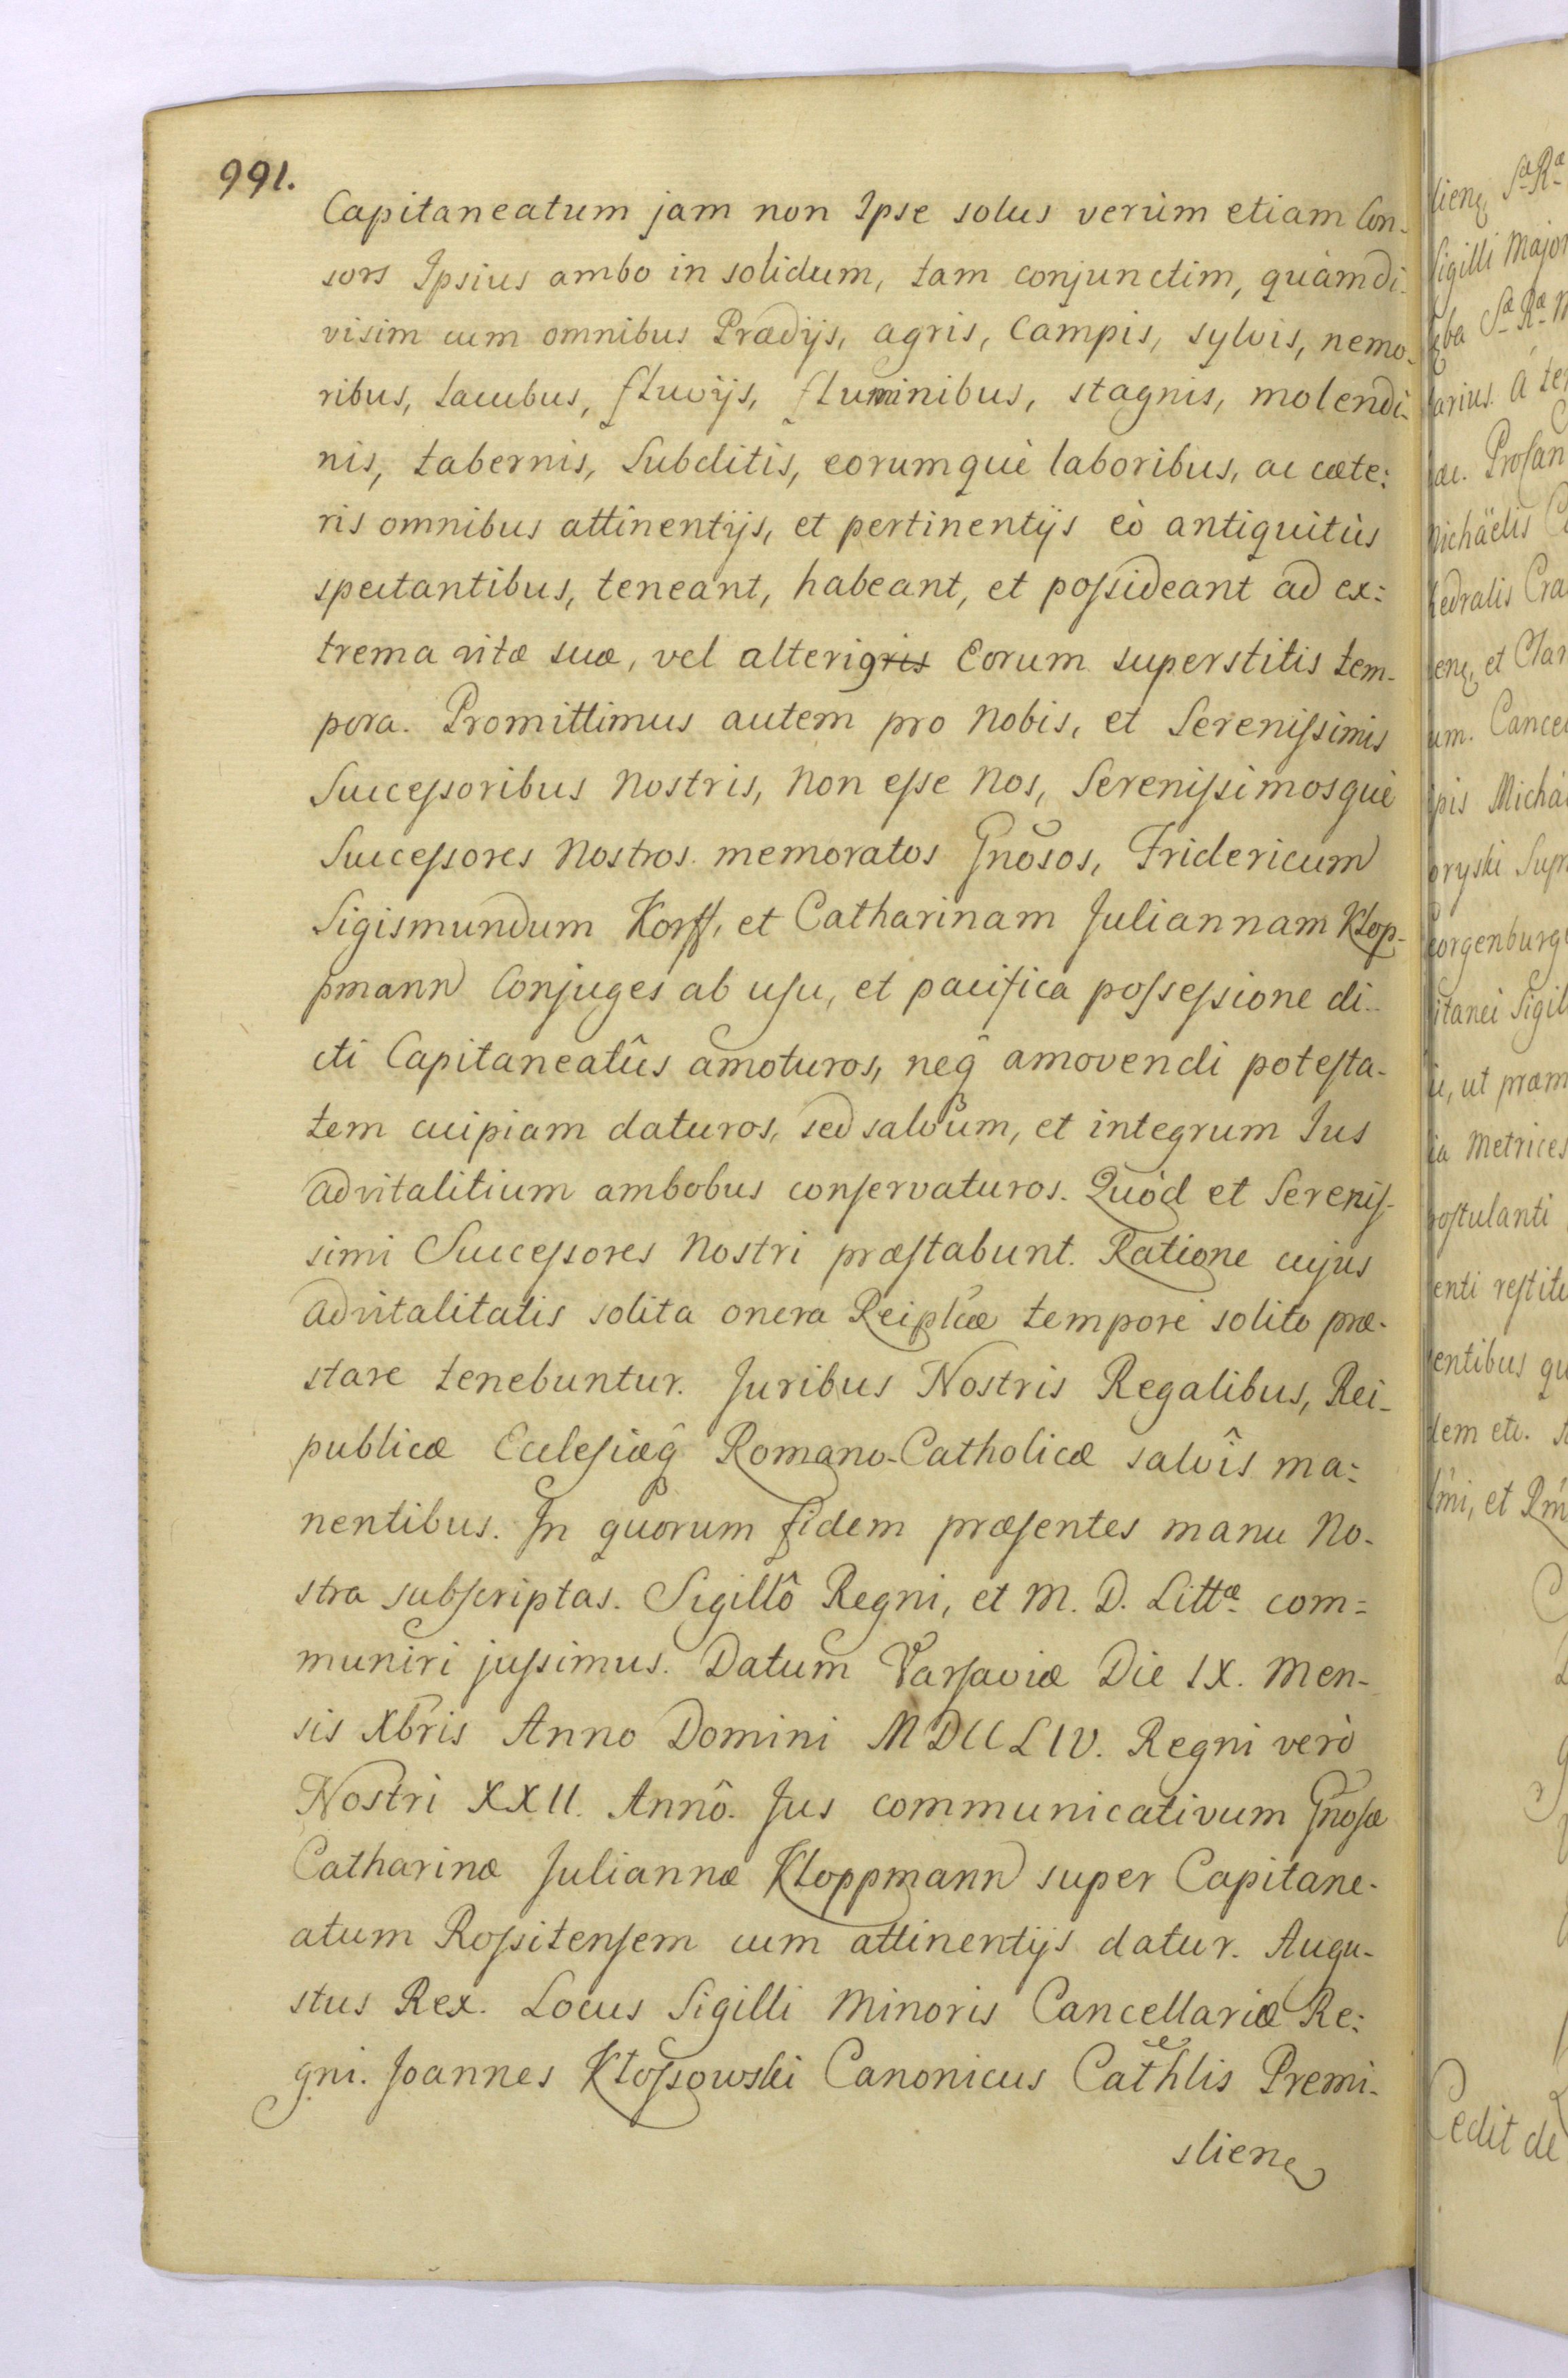 991.
Capitaneatum jam non Ipse solus verùm etiam Con-
sors Ipsius ambo in solidum, tam conjunctim, quàm di-
visim cum omnibus Prædijs, agris, Campis, sylvis, nemo-
ribus, lacubus, fluvijs, fluminibus, stagnis, molendi-
nis, tabernis, Subditis, eorumquè laboribus, ac cæte:
ris omnibus attinentijs, et pertinentijs eò antiquitùs
spectantibus, teneant, habeant, et possideant ad ex:
trema vitæ suæ, vel alterig̶r̶i̶s̶ Eorum superstitis tem-
pora. Promittimus autem pro Nobis, et Serenissimis
Successoribus Nostris, Non esse Nos, Serenissimosquè
Successores Nostros memoratos Gnõsos, Fridericum
Sigismundum Korff, et Catharinam Juliannam Klop-
pmann Conjuges ab usu, et pacifica possessione di-
cti Capitaneatûs amoturos, neq̃ amovendi potesta-
tem cuipiam daturos, sed salvum, et integrum Ius
advitalitium ambobus conservaturos. Quòd et Serenis-
simi Successores Nostri præstabunt. Ratione cujus
advitalitatis solita onera Reiplcæ tempore solito præ-
stare tenebuntur. Juribus Nostris Regalibus, Rei-
publicæ Ecclesiæq̃ Romano-Catholicæ salvîs ma:
nentibus. In quorum fidem præsentes manu No-
stra subscriptas. Sigillô Regni, et M. D. Littæ com=
muniri jussimus. Datum Varsaviæ Die IX. Men-
sis Xbris Anno Domini MDCCLIV. Regni verò
Nostri XXII. Annô. Jus communicativum Gnõsæ
Catharinæ Juliannæ Kloppmann super Capitane-
atum Rossitensem cum attinentijs datur. Augu-
stus Rex. Locus Sigilli Minoris Cancellariæ Re:
gni. Joannes Kłossowski Canonicus Cathlis Premi-
slieñ